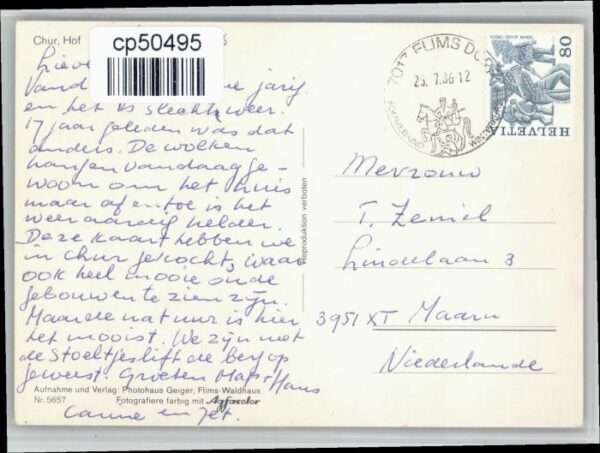 Chur, Hof
cp50495
Lieve
Vand jarig
en het is slecht weer.
17 jaar geleden was dat
anders. De wolken
hangen vandaag ge-
woon om het huis
maar af en toe is het
weer aardig helder.
Deze kaart hebben we
in Chur gekocht, waar
ook heel mooie oude
gebouwen te zien zijn.
Maar de natuur is hier
het mooist. We zijn met
de stoeltjeslift de berg op
geweest. Groeten Hans
Aufnahme und Verlag: Photohaus Geiger, Flims-Waldhaus
Nr. 5657 Fotografiere farbig mit Agfacolor
Carine en Jet.
Reproduktion verboten
7017 FLIMS DORF
25.7.86-12
HELVETIA
80
Mevrouw
T.
Lindelaan 3
3951 XT Maarn
Niederlande